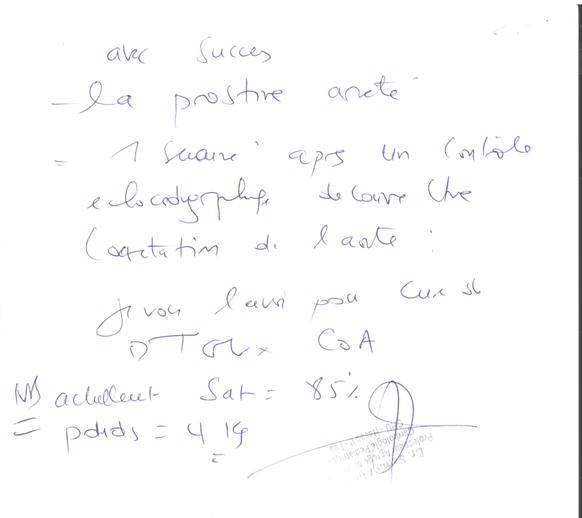 avec succes
- la prostine arreté
= 1 semaine apres un contrôle
echocardiographique decouvre une
Coarctation de l'aorte :
je vous l'envoi pour cure
D TGV x CoA
NB actuellement Sat = 85%
poids = 4